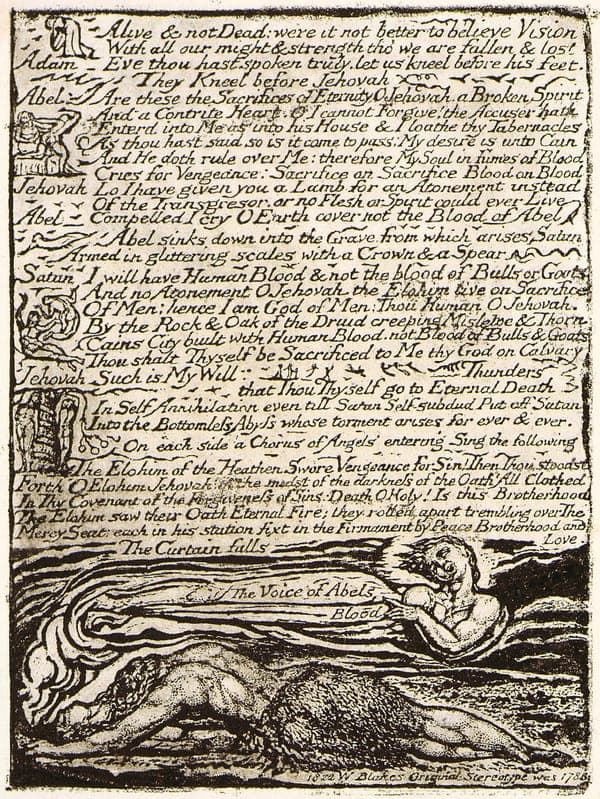 Alive & not Dead: were it not better to believe Vision
With all our might & strength tho we are fallen & lost
Adam Eve thou hast spoken truly. let us kneel before his feet.
They Kneel before Jehovah
Abel Are these the Sacrifices of Eternity O Jehovah. a Broken Spirit
And a Contrite Heart. O I cannot Forgive! the Accuser hath
Enterd into Me as into his House & I loathe thy Tabernacles
As thou hast said so is it come to pass: My desire is unto Cain
And He doth rule over Me: therefore My Soul in fumes of Blood
Cries for Vengeance: Sacrifice on Sacrifice Blood on Blood
Jehovah Lo I have given you a Lamb for an Atonement instead
Of the Transgresor. or no Flesh or Spirit could ever Live
Abel Compelled I cry O Earth cover not the Blood of Abel
Abel sinks down into the Grave. from which arises Satan
Armed in glittering scales with a Crown & a Spear
Satan I will have Human Blood & not the blood of Bulls or Goats
And no Atonement O Jehovah the Elohim live on Sacrifice
Of Men: hence I am God of Men: Thou Human O Jehovah.
By the Rock & Oak of the Druid creeping Misletoe & Thorn
Cains City built with Human Blood. not Blood of Bulls & Goats
Thou shalt Thyself be Sacrificed to Me thy God on Calvary
Jehovah Such is My Will. Thunders
that Thou Thyself go to Eternal Death
In Self Annihilation even till Satan Self-subdud Put off Satan
Into the Bottomless Abyss whose torment arises for ever & ever.
On each side a Chorus of Angels entering Sing the following
The Elohim of the Heathen Swore Vengeance for Sin! Then Thou stoodst
Forth O Elohim Jehovah! in the midst of the darkness of the Oath! All Clothed
In Thy Covenant of the Forgiveness of Sins: Death O Holy! Is this Brotherhood
The Elohim saw their Oath Eternal Fire; they rolled apart trembling over The
Mercy Seat: each in his station fixt in the Firmament by Peace Brotherhood and
Love.
The Curtain falls
The Voice of Abels
Blood
1822 W Blakes Original Stereotype was 1788